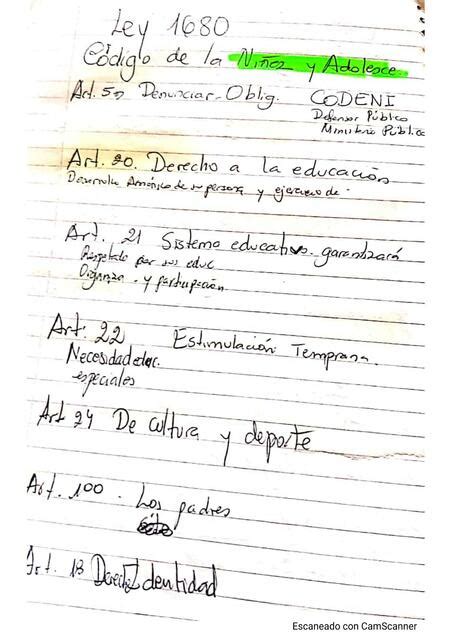 Ley 1680
Código de la Niñez y Adolesce..
Art. 5º Denunciar-Oblig. CODENI
Defensor Público
Ministerio Público
Art. 20. Derecho a la educación
Desarrollo Armónico de su persona y ejercicio de
Art. 21 Sistema educativo. garantizará
Respetado por sus educ
Organiza. y participación
Art. 22 Estimulación Temprana.
Necesidades
especiales
Art 24 De cultura y deporte
Art. 100. Los padres
Art. 18 Derecho Identidad
Escaneado con CamScanner